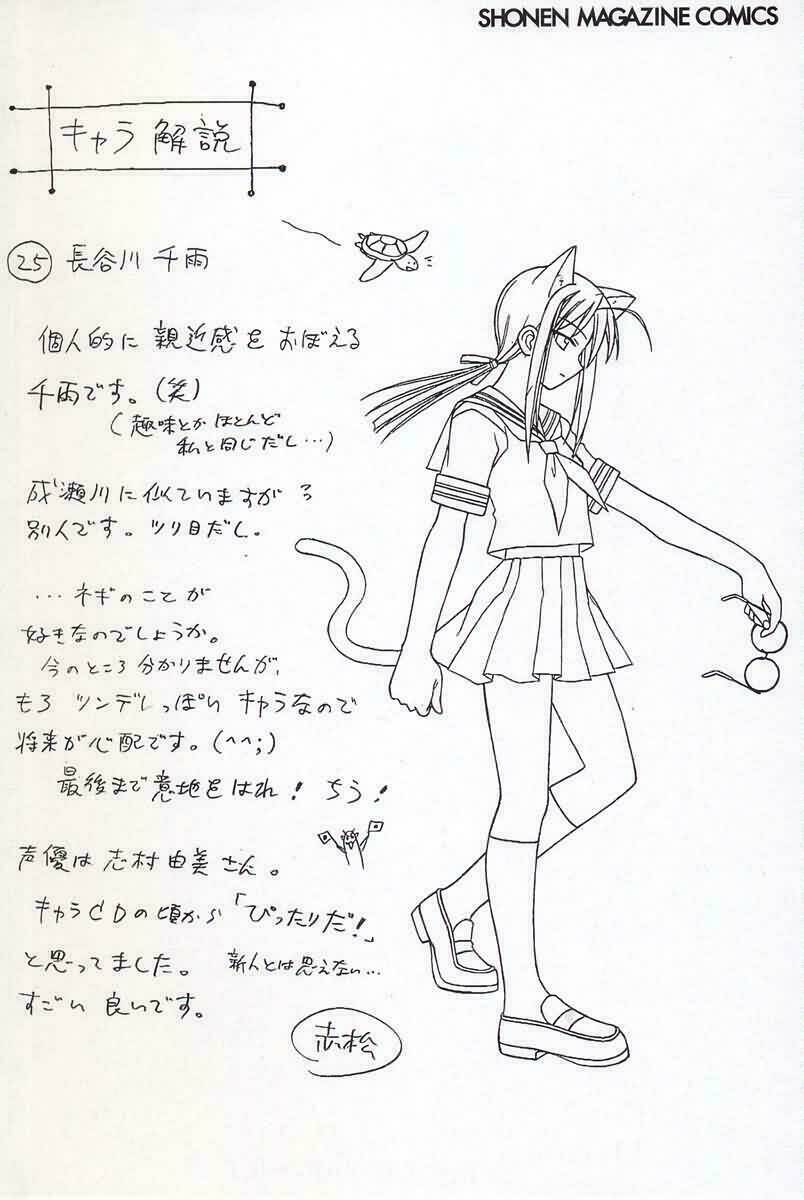 SHONEN MAGAZINE COMICS
キャラ 解説
25 長谷川 千雨
個人的に 親近感を おぼえる
千雨です。(笑)
(趣味とか ほとんど
私と同じだし…)
成瀬川に 似ていますが
別人です。ツリ目だし。
…ネギのことが
好きなのでしょうか。
今のところ 分かりませんが、
もろ ツンデレっぽい キャラなので
将来が 心配です。(^^;)
最後まで 意地を はれ! ちう!
声優は 志村 由美さん。
キャラCDの 頃から 「ぴったりだ!」
と思ってました。 新人とは思えない…
すごい 良いです。
赤松